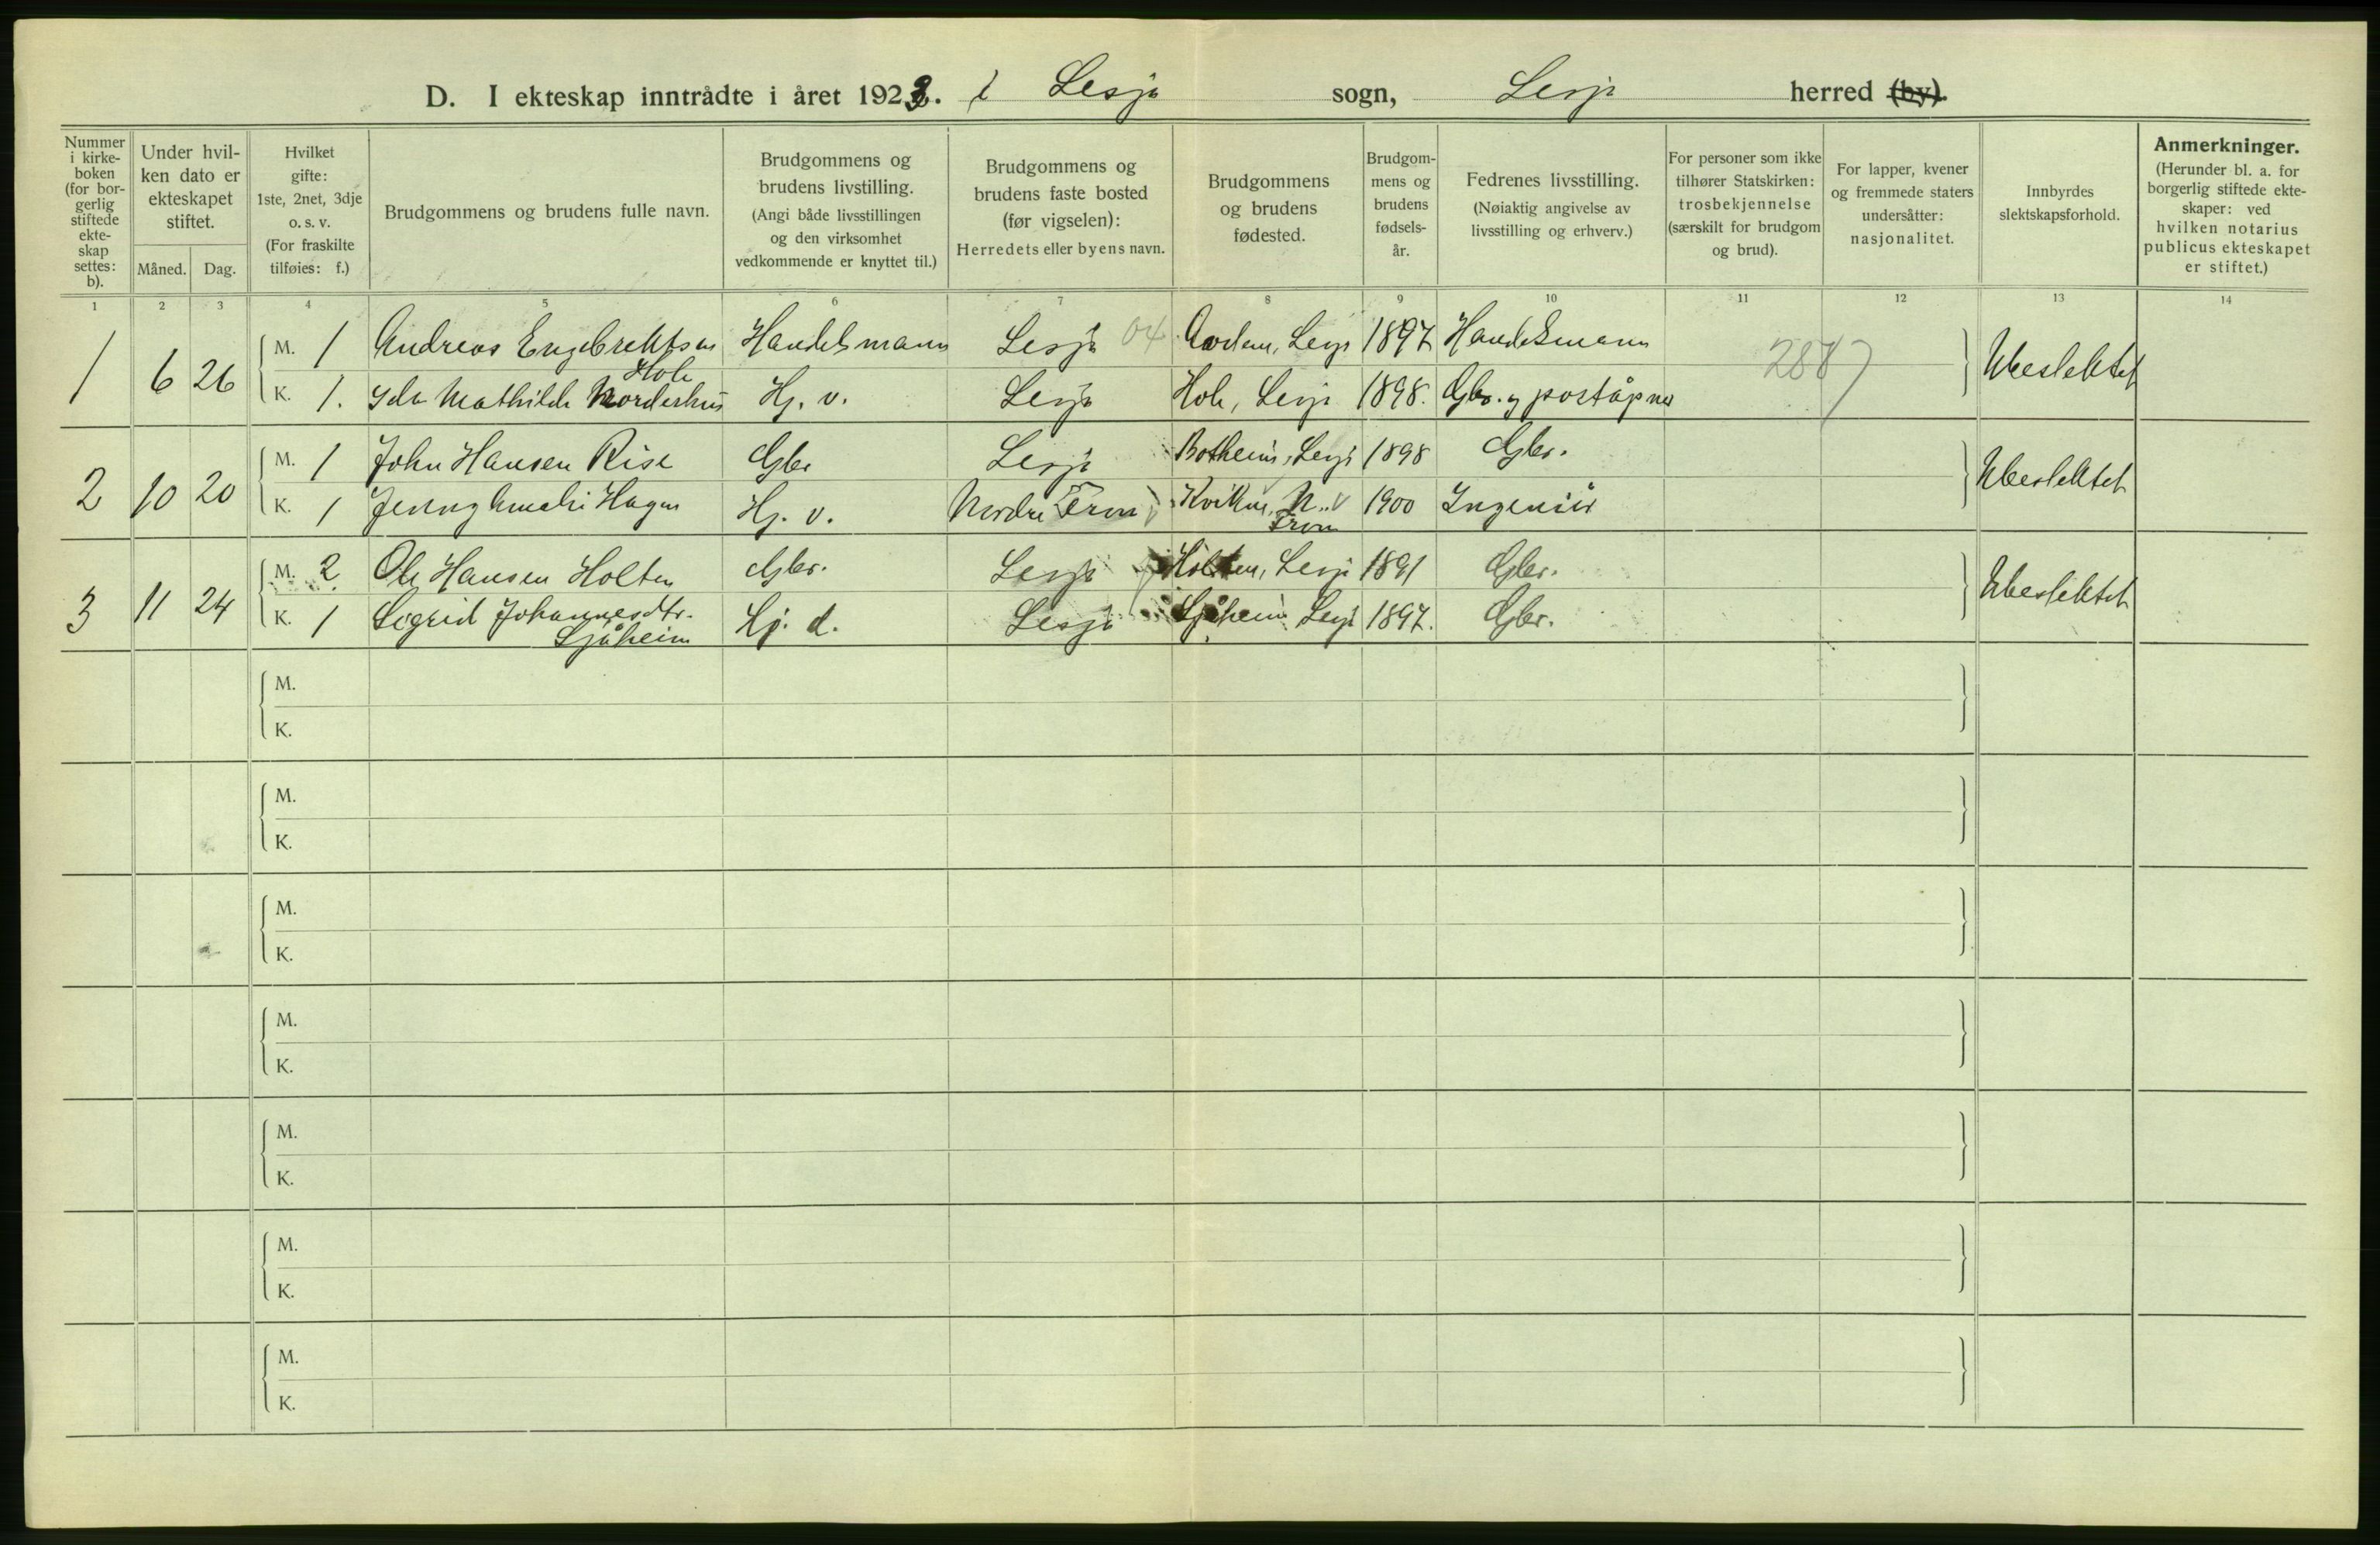 D. I ekteskap inntrådte i året 1923. i Lesja sogn, Lesja herred (by).
Nummer i kirkeboken (for borgerlig stiftede ekteskap settes: b).
Under hvilken dato er ekteskapet stiftet.
Måned. Dag.
Hvilket gifte: 1ste, 2net, 3dje o. s. v. (For fraskilte tilføies: f.)
Brudgommens og brudens fulle navn.
Brudgommens og brudens livstilling. (Angi både livsstillingen og den virksomhet vedkommende er knyttet til.)
Brudgommens og brudens faste bosted (før vigselen): Herredets eller byens navn.
Brudgommens og brudens fødested.
Brudgommens og brudens fødselsår.
Fedrenes livsstilling. (Nøiaktig angivelse av livsstilling og erhverv.)
For personer som ikke tilhører Statskirken: trosbekjennelse (særskilt for brudgom og brud).
For lapper, kvener og fremmede staters undersåtter: nasjonalitet.
Innbyrdes slektskapsforhold.
Anmerkninger. (Herunder bl. a. for borgerlig stiftede ekteskaper: ved hvilken notarius publicus ekteskapet er stiftet.)
1 2 3 4 5 6 7 8 9 10 11 12 13 14
1 6 26 M. 1 Andreas Engebrektsen Hole Handelsmann Lesja 04 Lesja 1897 Handelsmann 2887 Ubeslektet
K. 1. Ida Mathilde Norderhus Hj. v. Lesja Hole, Lesja 1898. Gbr. og poståpner
2 10 20 M. 1 John Hansen Rise Gbr Lesja Botheim, Lesja 1898 Gbr. Ubeslektet
K. 1 Jenny Amalie Hagen Hj. v. Nordre Fron Kvikne, N. Fron 1900 Ingeniør
3 11 24 M. 2 Ole Hansen Holten Gbr. Lesja Holten, Lesja 1891 Gbr. Ubeslektet
K. 1 Sigrid Johannesdtr. Ljåheim Hj. d. Lesja Ljåheim Lesja 1897. Gbr.
M.
K.
M.
K.
M.
K.
M.
K.
M.
K.
M.
K.
M.
K.